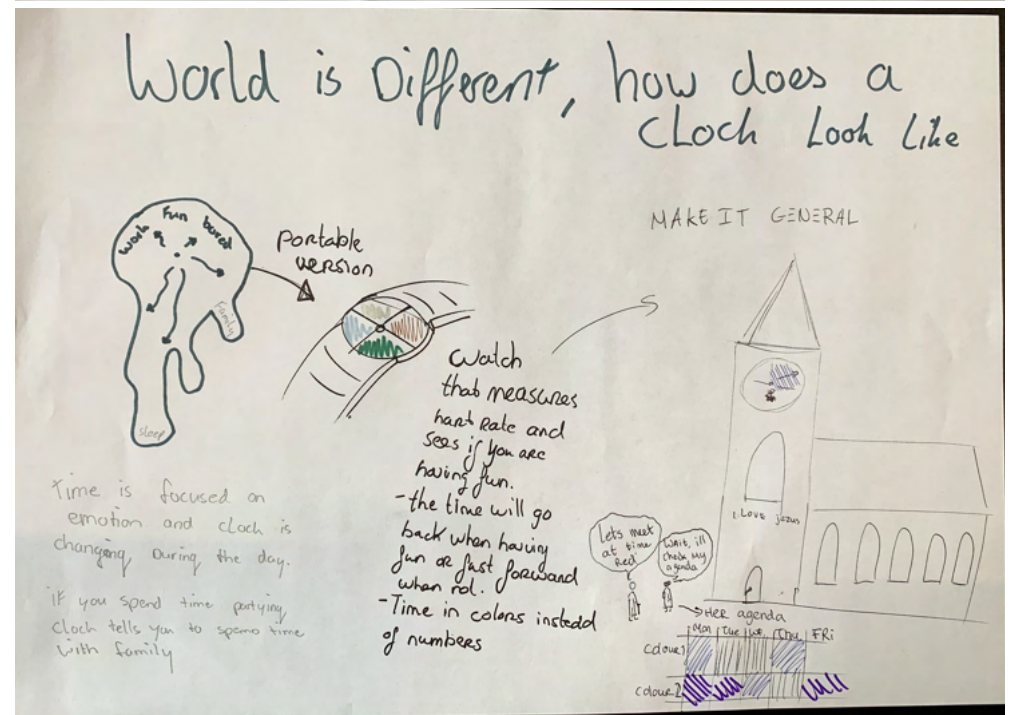 World is Different, how does a
Cloch Look Like
work fun bored
family
sleep
portable
version
Watch
that measures
hart Rate and
sees if you are
having fun.
- the time will go
back when having
fun or fast forward
when not.
- Time in colors instead
of numbers
Time is focused on
emotion and clock is
changing, During the day.
if you spend time partying
Clock tells you to spend time
with family
MAKE IT GENERAL
i Love jezus
Lets meet
at time
Red
Wait, ill
check My
agenda
Her agenda
Mon Tue We Thu FRi
Colour 1
Colour 2